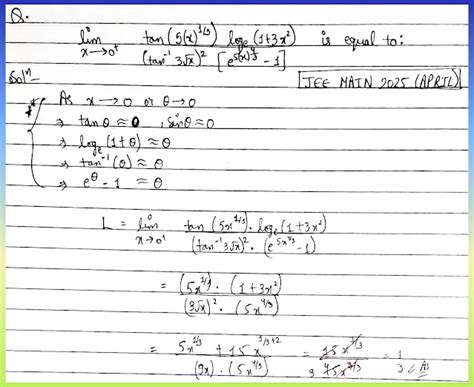 Q.
lim x→0⁺ tan(5(x)^{1/3}) logₑ(1+3x²) / (tan⁻¹ 3√x)² [e^{5(x)^{4/3}} - 1] is equal to:
JEE MAIN 2025 (APRIL)
Solⁿ
* As x → 0 or θ → 0
⇒ tan θ ≈ 0, sin θ ≈ 0
⇒ logₑ(1+θ) ≈ θ
⇒ tan⁻¹(θ) ≈ θ
⇒ e^θ - 1 ≈ θ
L = lim x→0⁺ tan(5x^{1/3}) · logₑ(1+3x²) / (tan⁻¹ 3√x)² · (e^{5x^{4/3}} - 1)
= (5x^{1/3}) · (1+3x²) / (3√x)² · (5x^{4/3})
= 5x^{1/3} + 15x^{1/3+2} / (9x) · (5x^{4/3}) = 15x^{7/3} / 45x^{7/3} = 1/3 Ans